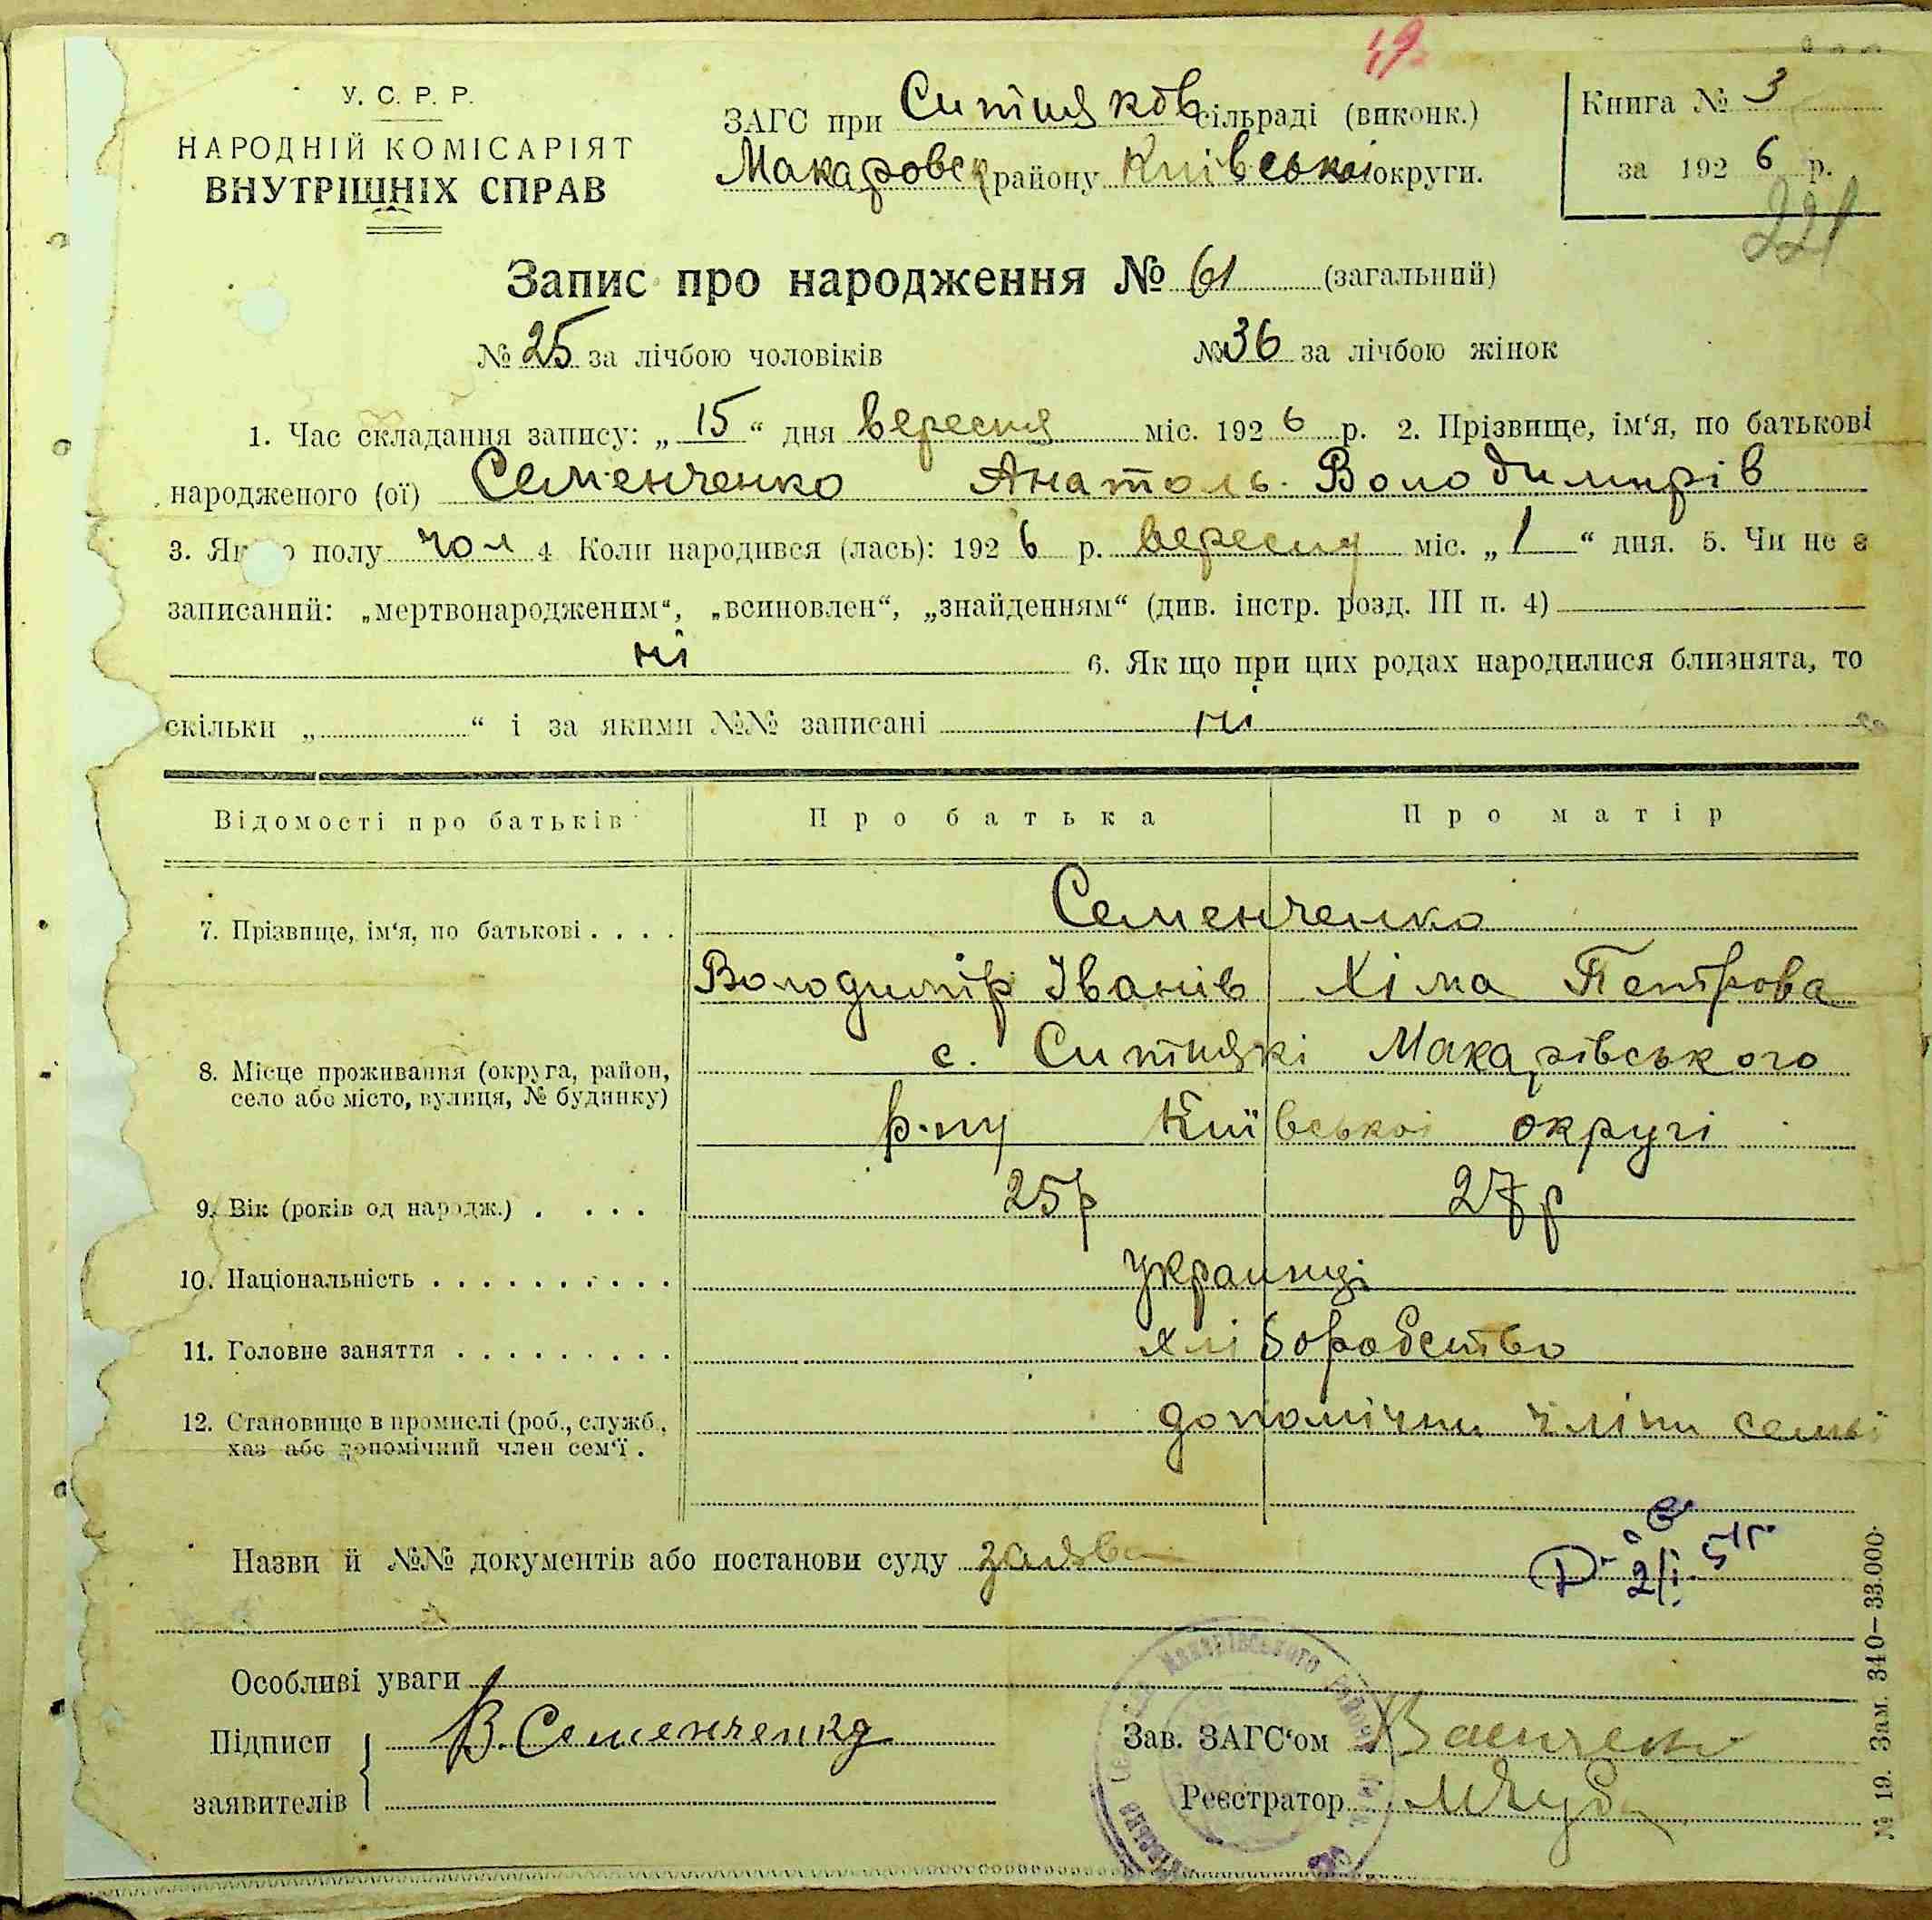 49
У. С. Р. Р.
НАРОДНІЙ КОМІСАРІЯТ
ВНУТРІШНІХ СПРАВ
ЗАГС при Ситняков сільраді (виконк.)
Макаровск району Київськоі округи.
Книга № 3
за 1926 р.
221
Запис про народження № 61 (загальний)
№ 25 за лічбою чоловіків № 36 за лічбою жінок
1. Час складання запису: „15“ дня вересня міс. 1926 р. 2. Прізвище, ім‘я, по батькові
народженого (ої) Семенченко Анатоль Володимирів
3. Як о полу чол 4 Коли народився (лась): 1926 р. вересня міс. „1“ дня. 5. Чи не є
записаний: „мертвонародженим“, „всиновлен“, „знайденням“ (див. інстр. розд. III п. 4)
ні 6. Як що при цих родах народилися близнята, то
скільки „ “ і за якими №№ записані ні
Відомості про батьків Про батька Про матір
7. Прізвище, ім‘я, по батькові . . . . Семенченко
Володимір Іванів Хіма Петрова
8. Місце проживання (округа, район, село або місто, вулиця, № будинку) с. Ситнякі Макарівського
р-ну Київськоі округі
9. Вік (років од народж.) . . . . 25р 27р
10. Національність . . . . . . . . . . Украинці
11. Головне заняття . . . . . . . . . хліборобство
12. Становище в промислі (роб., служб., хаз або допомічний член сем‘ї . допомічни члени семьі
Назви й №№ документів або постанови суду заява
Особливі уваги
Підписи заявителів В. Семенченко
Зав. ЗАГС‘ом
Реєстратор
Макарівського району
№ 19. Зам. 340–33.000.